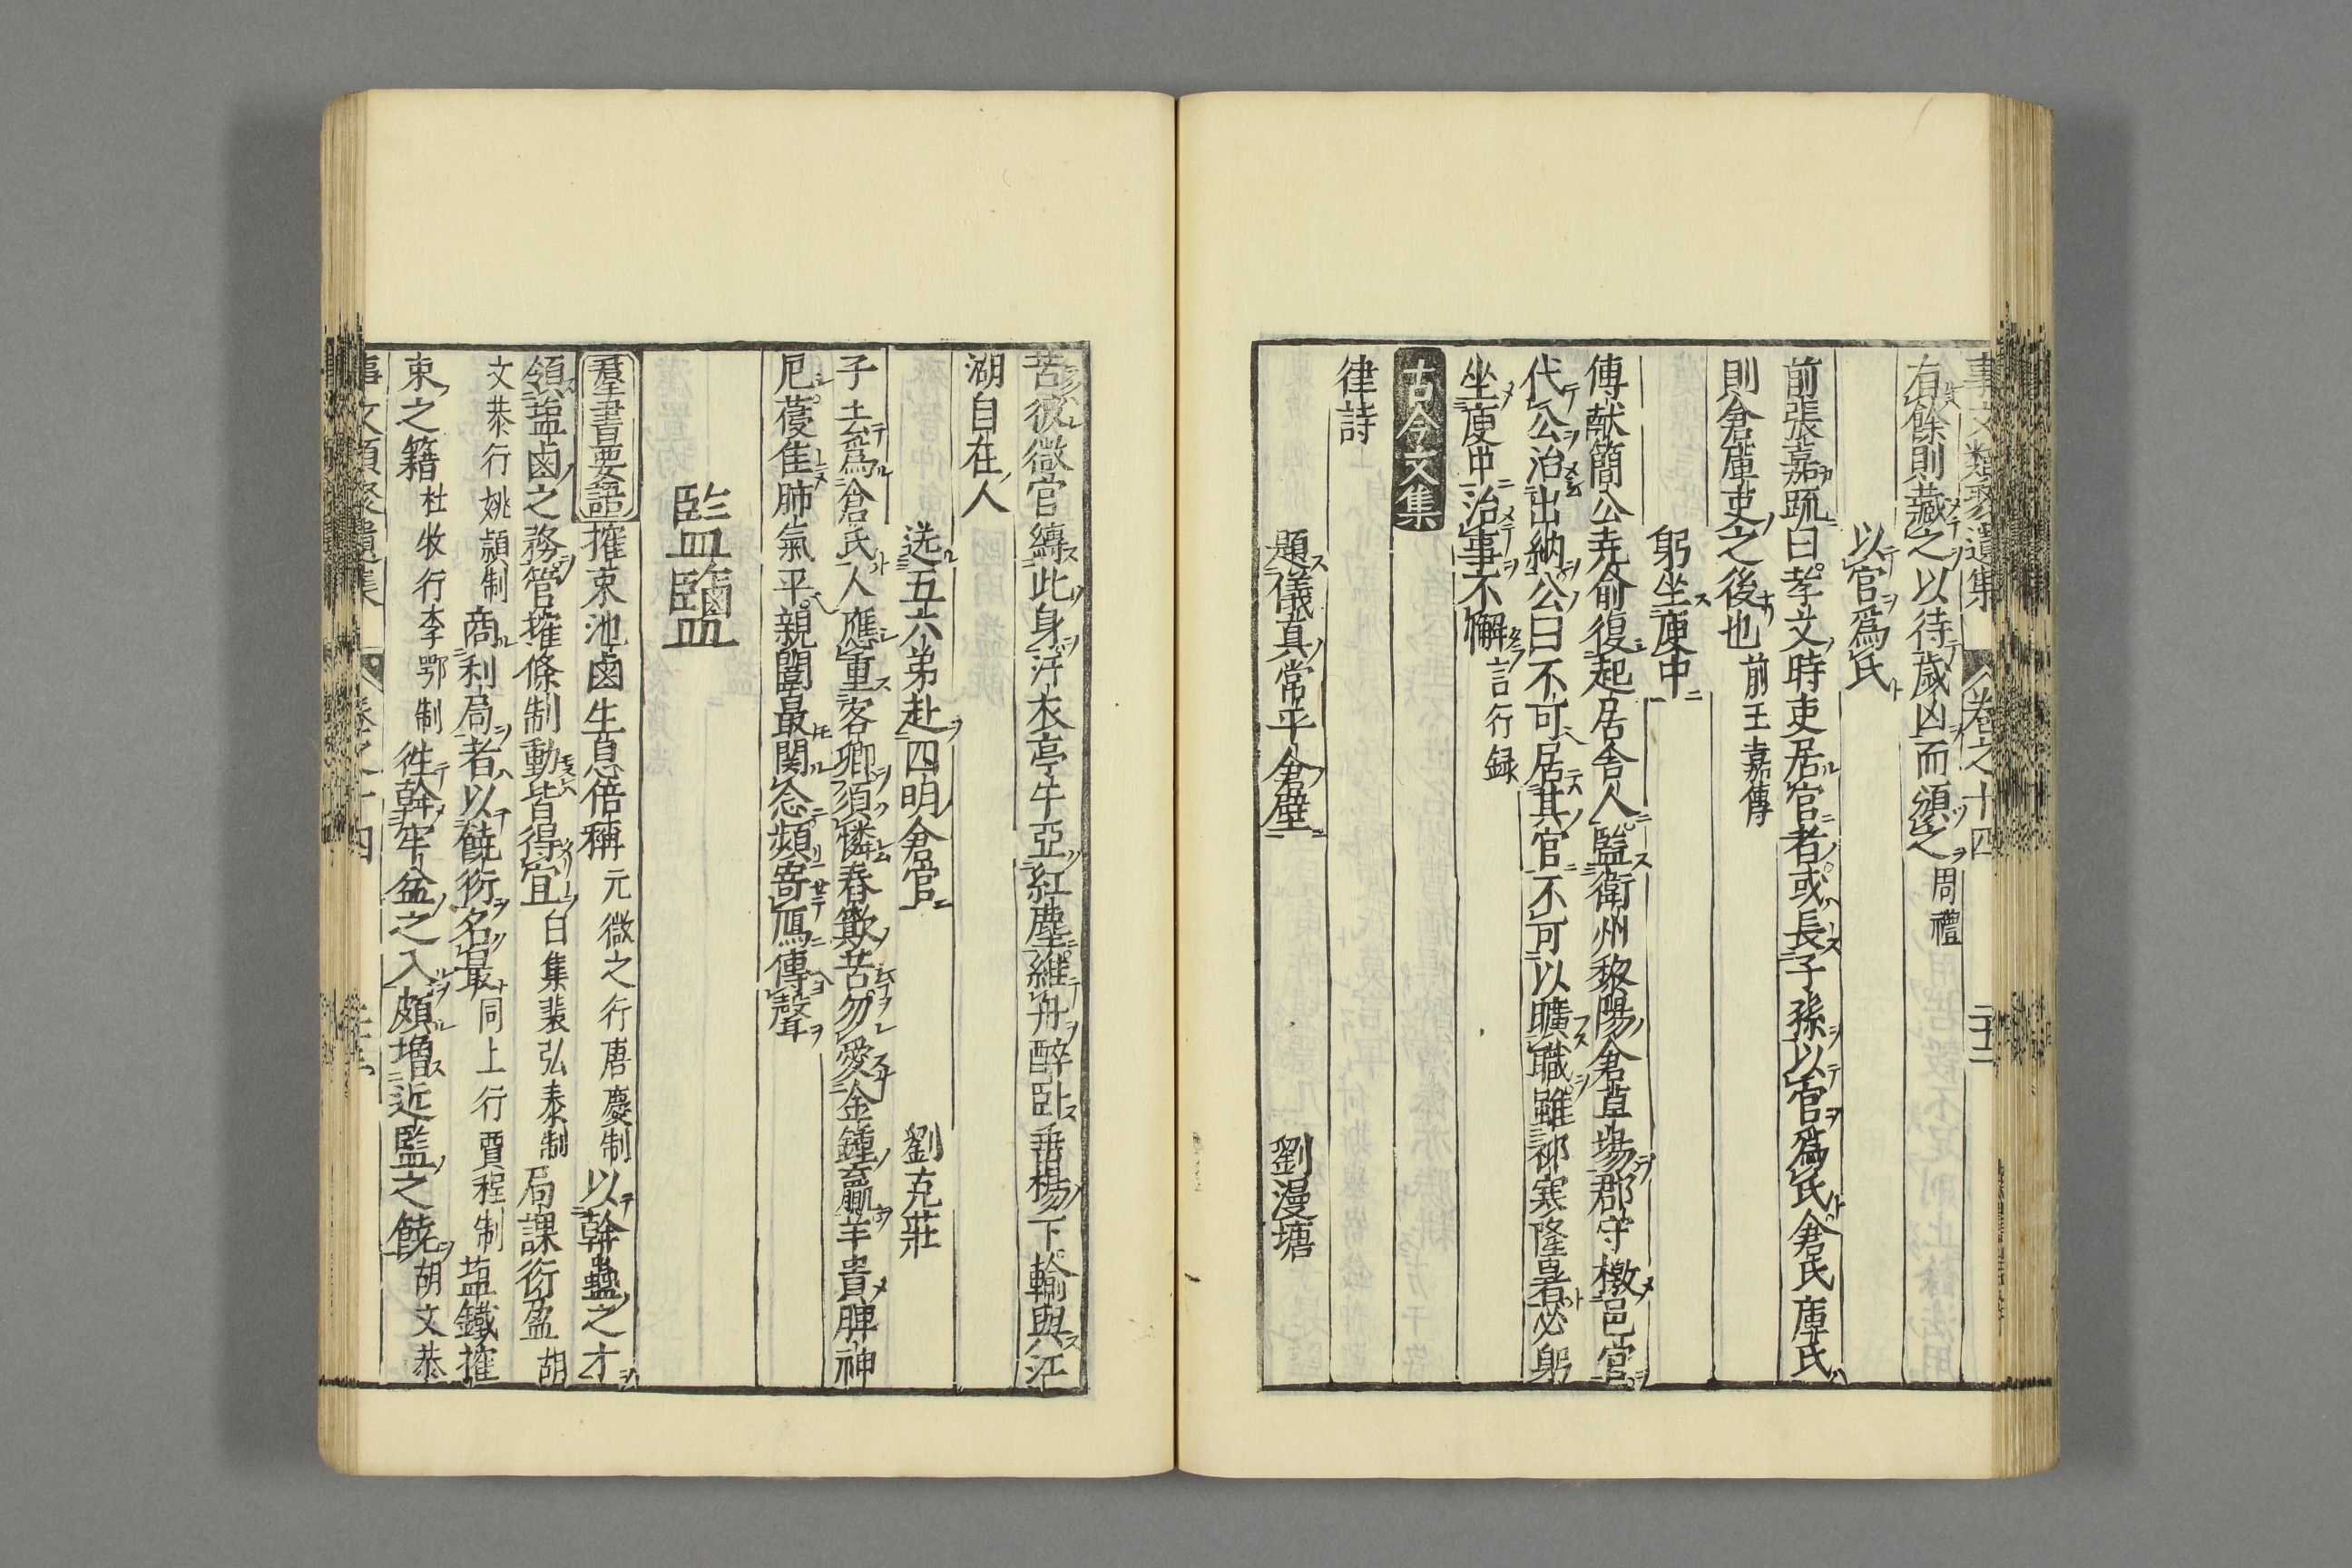 事文類聚遺集 卷之十四 二十二
有餘則藏之以待歲凶而頒之 周禮
以官爲氏
前張嘉䟽曰孝文時吏居官者或長子孫以官爲氏倉氏庫氏
則倉庫吏之後也 前王嘉傳
躬坐庾中
傅献簡公尭俞復起居舍人監衛州黎陽倉草場郡守檄邑官
代公治出納公曰不可居其官不可以曠職雖祁寒隆暑必躬
坐庾中治事不懈 言行録
古今文集
律詩
題儀真常平倉壁 劉漫塘
苦彼微官縛此身汙衣亭午亞紅塵維舟醉卧垂楊下輸與江
湖自在人
送五六弟赴四明倉官 劉克莊
子去爲倉氏人應重客卿須憐舂歎苦勿愛金鍾羸羊貴脾神
厄萯隹肺氣平親闈最関念頻寄鴈傳聲
監鹽
羣書要語 搉束池鹵生息倍稱 元微之行唐慶制 以幹蠱之才
領塩鹵之務管搉條制動皆得宜 白集裴弘泰制 局課衍盈 胡
文恭行姚頴制 商利局者以饒衍名最 同上行賈程制 塩鐵搉
束之籍 杜牧行李鄂制 徃幹牢盆之入頗増近監之饒 胡文恭
事文類聚遺集 卷之十四